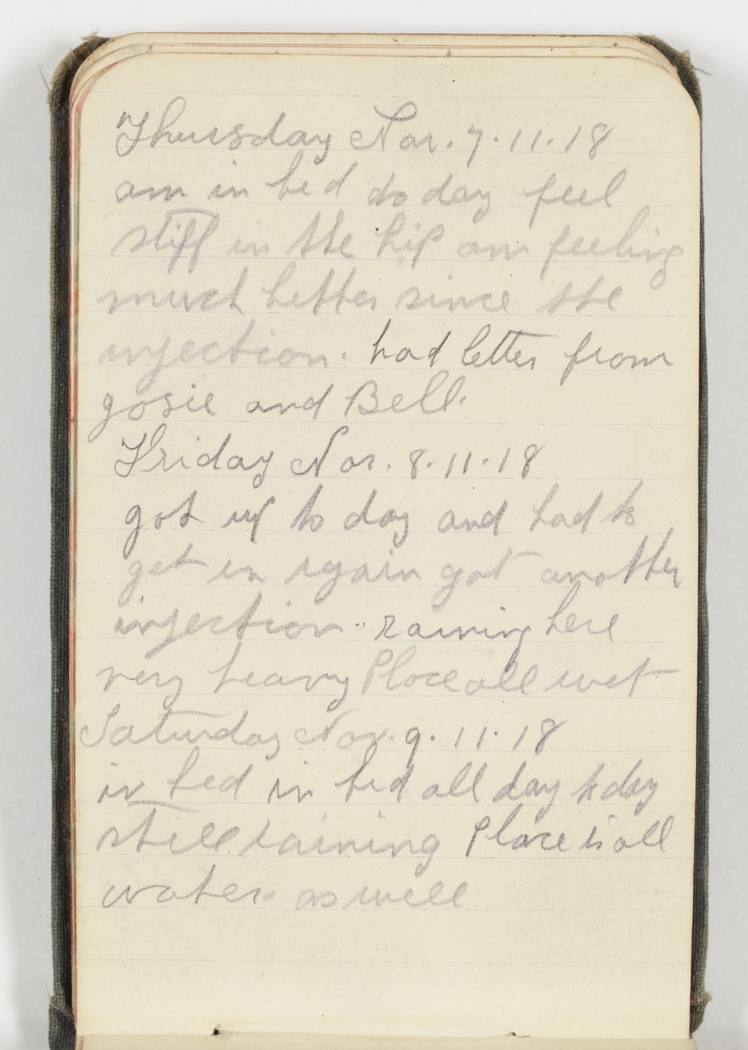 Thursday Nov. 7.11.18
am in bed to day feel
stiff in the hip am feeling
much better since the
injection. had letter from
Josie and Bell.
Friday Nov. 8.11.18
got up to day and had to
get in again got another
injection.. raining here
very heavy Place all wet
Saturday Nov. 9.11.18
in bed in bed all day to day
still raining Place is all
water as well